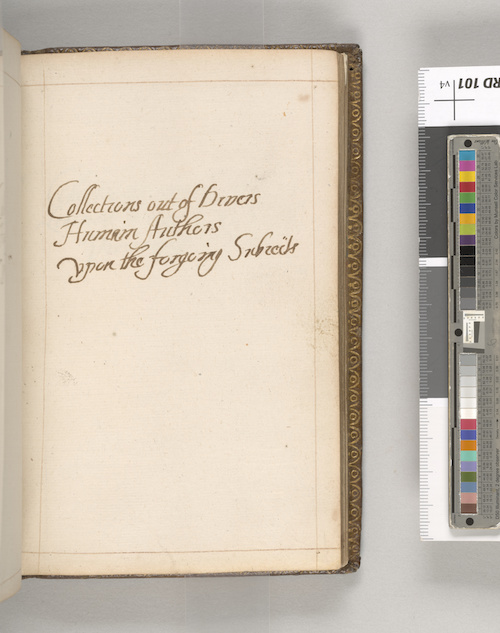 Collections out of Divers
Humain Authors
vpon the forgoing Subiects
RD 101
v4